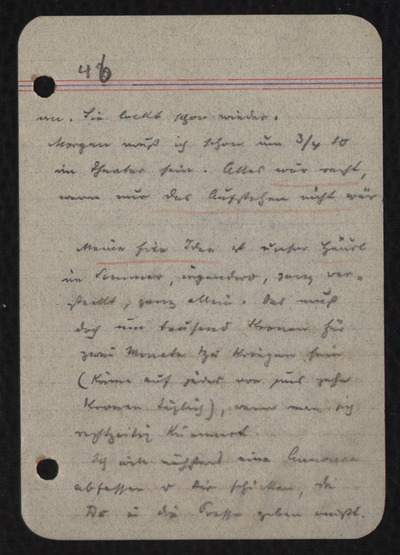 46
an. Sie lockt schon wieder.
Morgen muß ich schon um 3/4 10
im Theater sein. Alles wär recht,
wenn nur das Aufstehen nicht wär
Meine fixe Idee ist unser Häusl
im Sommer, irgendwo, ganz ver-
stellt, ganz allein. Das muß
doch um tausend Kronen für
zwei Monate zu kriegen sein
(käme auf jeden von uns zehn
Kronen täglich), wenn man sich
rechtzeitig kümmert.
Ich will nächstens eine Annonce
abfassen u Dir schicken, die
Du in die Presse geben mußt.